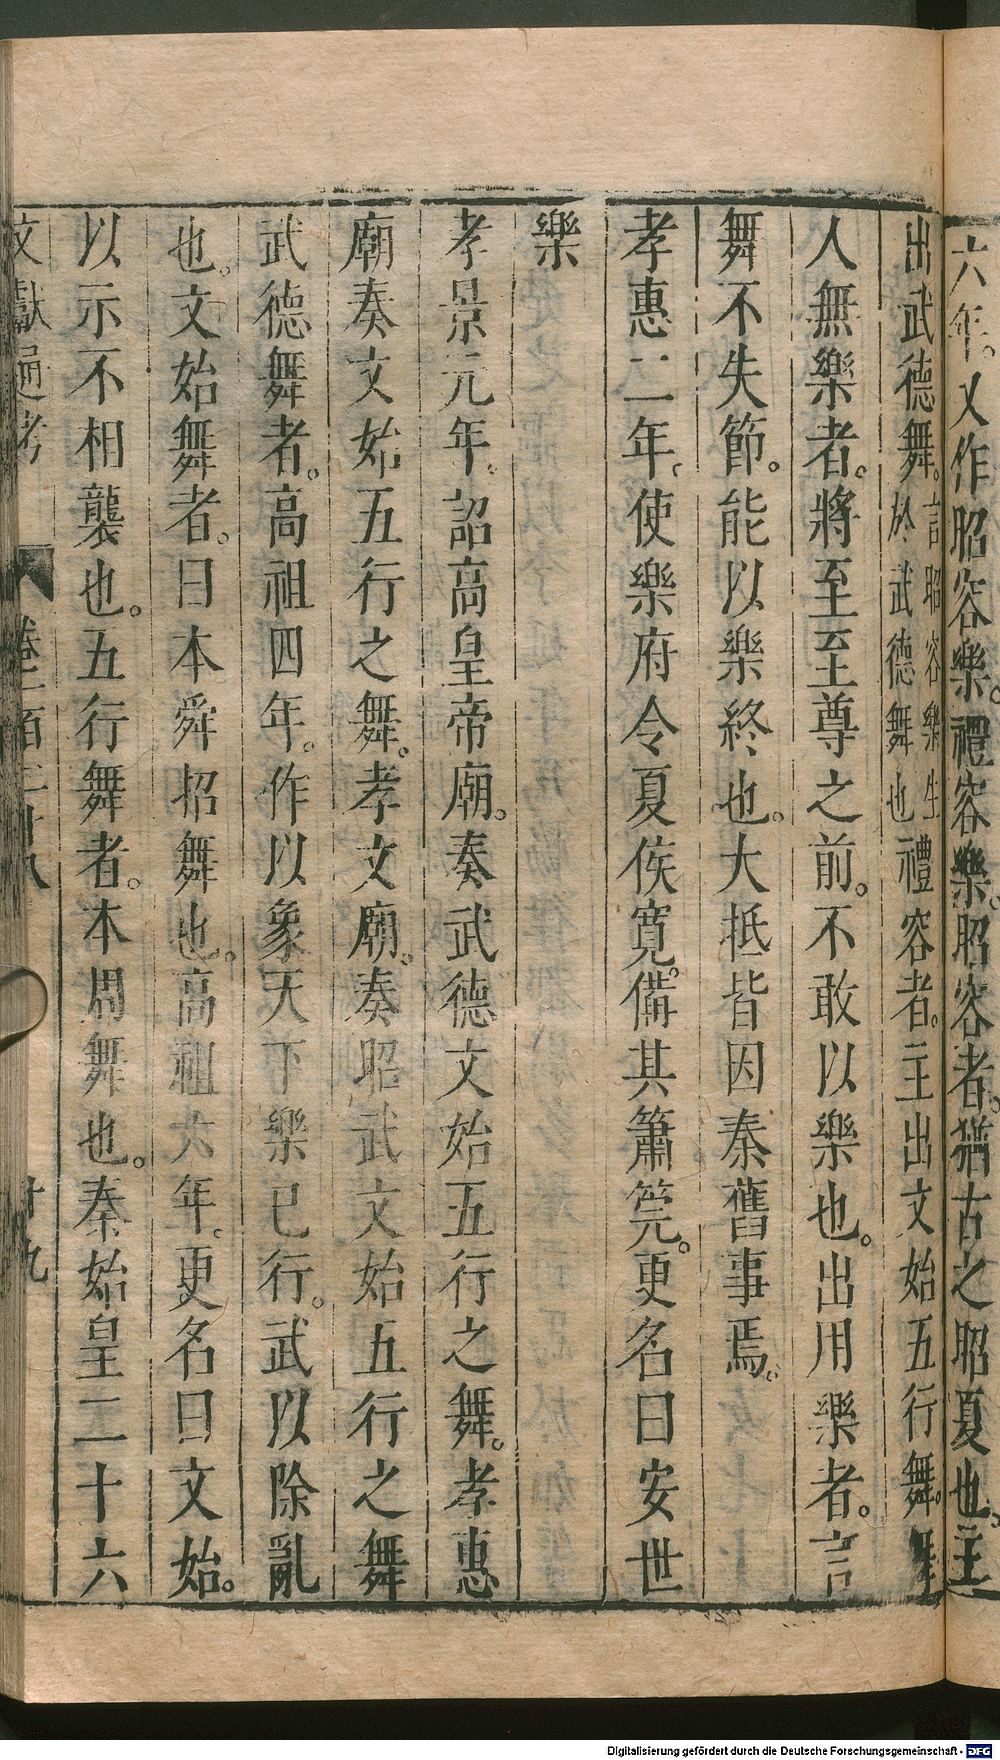 六年。又作昭容樂。禮容樂。昭容者。猶古之昭夏也。主
出武德舞。言昭容樂生於武德舞也禮容者。主出文始五行舞。舞
人無樂者。將至至尊之前。不敢以樂也。出用樂者。言
舞不失節。能以樂終也。大抵皆因秦舊事焉。
孝惠二年。使樂府令夏侯寬。備其簫筦。更名曰安世
樂
孝景元年。詔高皇帝廟。奏武德文始五行之舞。孝惠
廟奏文始五行之舞。孝文廟。奏昭武文始五行之舞
武德舞者。高祖四年。作以象天下樂已行。武以除亂
也。文始舞者。曰本舜招舞也。高祖六年。更名曰文始。
以示不相襲也。五行舞者。本周舞也。秦始皇二十六
文獻通考 卷一百三十八 十九
Digitalisierung gefördert durch die Deutsche Forschungsgemeinschaft - DFG